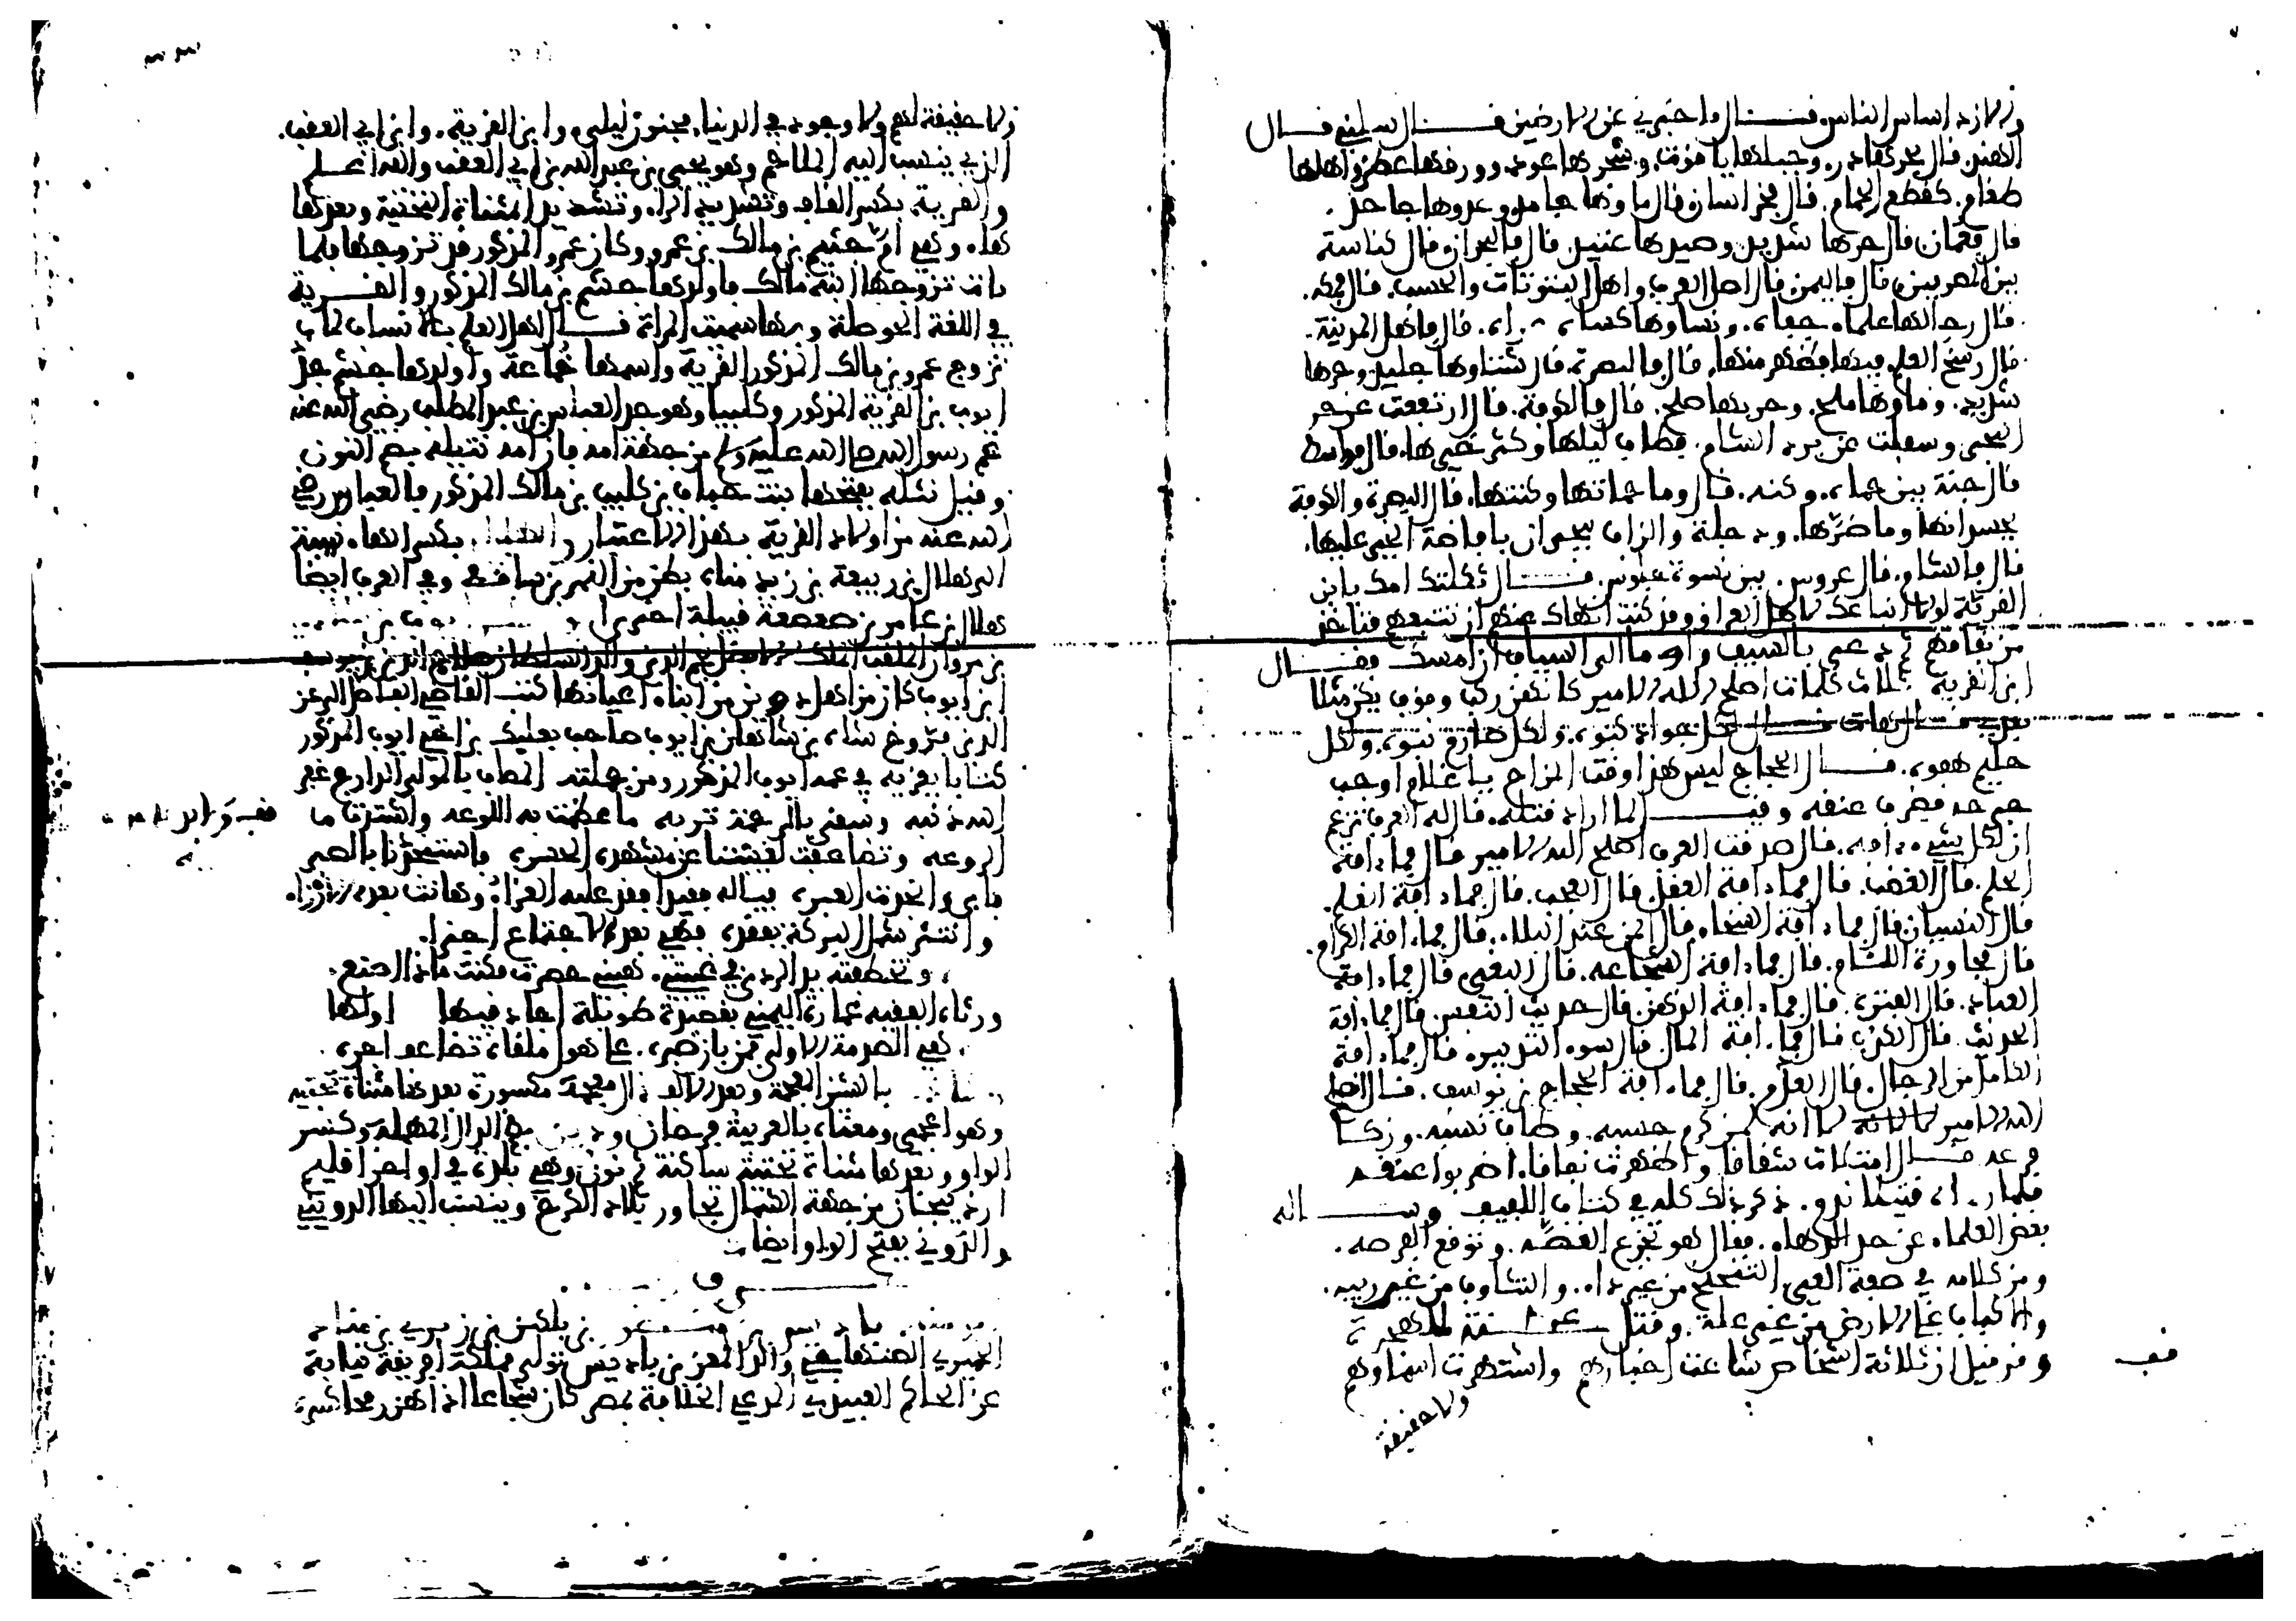 والازد اساس الناس فقال فاخبرني عن الارضين قال سلني قال
الهند قال بحرها در وجبلها ياقوت وشجرها عود وورقها عطر واهلها
طغام كقطع الحمام قال فخراسان قال ماؤها جامد وعدوها جاحد
قال فعمان قال حرها شديد وصيدها عتيد قال فالبحران قال كناسة
بين المصرين قال فاليمن قال اصل العرب واهل البيوتات والحسب قال فمكة
قال رجالها علماء جفاة ونساؤها كساة عراة قال فالمدينة
قال رسخ العلم فيها وظهر منها قال فالبصرة قال شتاؤها جليد وحرها
شديد وماؤها ملح وحربها صلح قال فالكوفة قال ارتفعت عن حر
البحر وسفلت عن برد الشام فطاب ليلها وكثر خيرها قال فواسط
قال جنة بين حماة وكنة قال وما حماتها وكنتها قال البصرة والكوفة
يحسدانها وما ضرها ودجلة والزاب يتجاريان بافاضة الخير عليها
قال فالشام قال عروس بين نسوة جلوس قال ثكلتك امك يابن
القرية لولا اتباعك لاهل العراق وقد كنت انهاك عنهم ان تتبعهم فتاخذ
من نفاقهم ثم دعى بالسيف واومأ الى السياف ان امسك فقال
ابن القرية ثلاث كلمات اصلح الله الامير كانهن ركب وقوف يكن مثلا
بعدي قال هات قال لكل جواد كبوة ولكل صارم نبوة ولكل
حليم هفوة قال الحجاج ليس هذا وقت المزاح يا غلام اوجب
جرحه فضرب عنقه وقيل لما اراد قتله قال له العرب تزعم
ان لكل شيء افة قال صدقت العرب اصلح الله الامير قال فما افة
الحلم قال الغضب قال فما افة العقل قال العجب قال فما افة العلم
قال النسيان قال فما افة السخاء قال المن عند البلاء قال فما افة الكرام
قال مجاورة اللئام قال فما افة الشجاعة قال البغي قال فما افة
العبادة قال الفترة قال فما افة الذهن قال حديث النفس قال فما افة
الحديث قال الكذب قال فما افة المال قال سوء التدبير قال فما افة
الكامل من الرجال قال العدم قال فما افة الحجاج بن يوسف قال اصلح
الله الامير لا افة لمن كرم حسبه وطاب نسبه وزكا
فرعه قال امتلات شقاقا واظهرت نفاقا اضربوا عنقه
فلما راه قتيلا ندم ذكر ذلك كله في كتاب اللفيف وساله
بعض العلماء عن حد الدهاء فقال هو تجرع الغصة وتوقع الفرصة
ومن كلامه في صفة العي التنحنح من غير داء والتثاوب من غير ريبة
والاكباب على الارض من غير علة وقتل سنة للهجرة
وقد قيل ان ثلاثة اشخاص شاعت اخبارهم واشتهرت اسماؤهم
قف
ولا حقيقة
ولا حقيقة لهم ولا وجود في الدنيا مجنون ليلى وابن القرية وابن ابي العقب
الذي ينسب اليه الملاحم وهو يحيى بن عبد الله بن ابي العقب والله اعلم
والقرية بكسر القاف وتشديد الراء وتشديد المثناة التحتية وبعدها
هاء وهي ام جشم بن مالك بن عمرو وكان عمرو المذكور قد تزوجها فلما
مات تزوجها ابنه مالك فاولدها جشم بن مالك المذكور والقرية
في اللغة الحوصلة وبها سميت المراة قال اهل العلم بالانساب لما
تزوج عمرو بن مالك المذكور القرية واسمها جماعة واولدها جشم جد
ايوب بن القرية المذكور وكليبا وهو جد العباس بن عبد المطلب رضي الله عنه
عم رسول الله صلى الله عليه وسلم من جهة امه فان امه نتيلة بضم النون
وقيل نثلة بفتحها بنت حباب بن كليب بن مالك المذكور فالعباس رضي
الله عنه من اولاد القرية بهذا الاعتبار والهلالي بكسر الهاء نسبة
الى هلال بن ربيعة بن زيد مناة بطن من النمر بن قاسط وفي العرب ايضا
هلال بن عامر بن صعصعة قبيلة اخرى
بن مروان الملقب الملك الافضل نجم الدين والد السلطان صلاح الدين يوسف
ابن ايوب كان من اهل دوين من ابناء اعيانها كتب القاضي الفاضل الى عز
الدين فروخ شاه بن شاهنشاه بن ايوب صاحب بعلبك بن اخي ايوب المذكور
كتابا يعزيه في عمه ايوب المذكور ومن جملته المصاب بالمولى الدارج غفر
الله ذنبه وسقى بالرحمة تربه ما عظمت به اللوعة واشتدت
الروعة وتضاعفت لغيبتنا عن مشهده الحسرة فاستنجدنا بالصبر
فابى وانحدرت العبرة فيا له فقيدا فقد عليه العزاء وهانت بعده الارزاء
وانتثر شمل البركة بفقده فهي بعد الاجتماع اجزاء
وتخطفته يد الردى في غيبتي هبني حضرت فكنت ماذا اصنع
ورثاه الفقيه عمارة اليمني بقصيدة طويلة اجاد فيها اولها
هي الصدمة الاولى فمن بان صبره على هول ملقاه تضاعف اجره
بالشين المعجمة وبعد الالف ذال معجمة مكسورة بعدها مثناة تحتية
وهو اعجمي ومعناه بالعربية فرحان ودوين بضم الدال المهملة وكسر
الواو وبعدها مثناة تحتية ساكنة ثم نون وهي بلدة في اواخر اقليم
اذربيجان من جهة الشمال تجاور بلاد الكرج وينسب اليها الدويني
والدوني بفتح الواو ايضا
باديس بن منصور بن بلكين بن زيري بن مناد
الحميري الصنهاجي والد المعز بن باديس تولى مملكة افريقية نيابة
عن الحاكم العبيدي المدعي الخلافة بمصر كان شجاعا اذا هز رمحا كسره